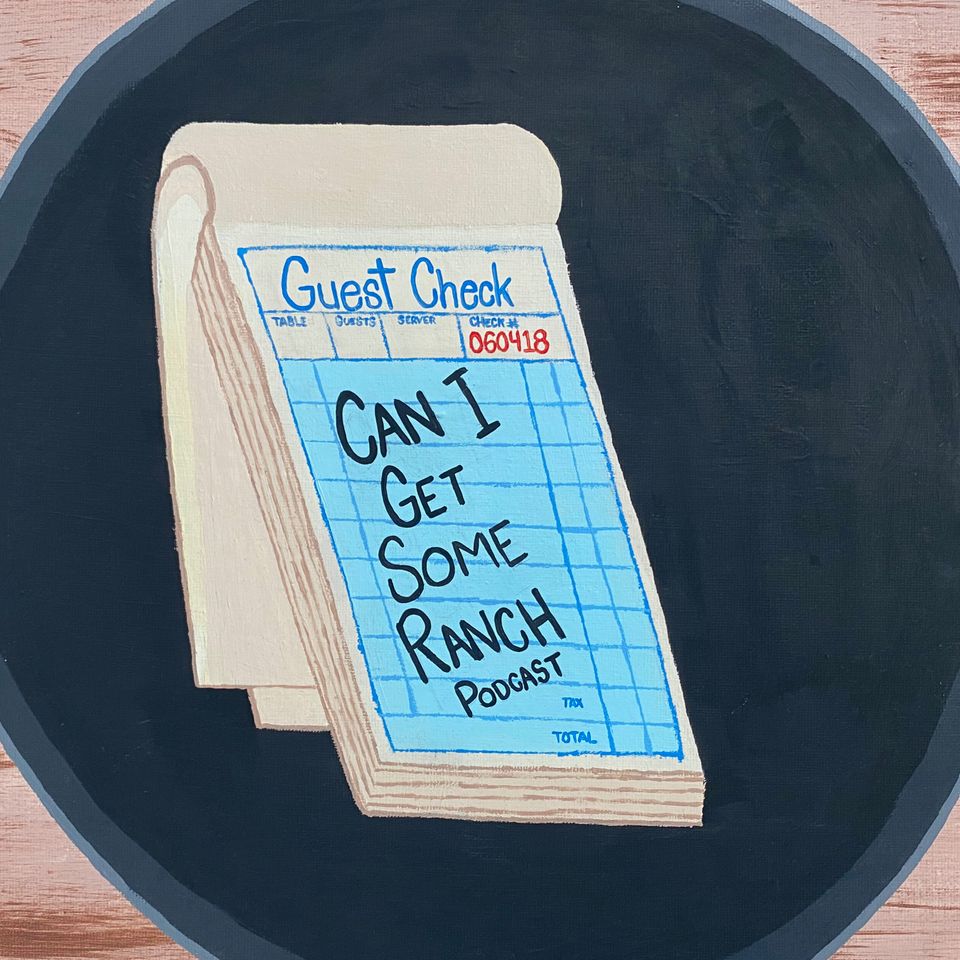 Guest Check
TABLE GUESTS SERVER CHECK#
060418
CAN I
GET
SOME
RANCH
PODCAST
TAX
TOTAL